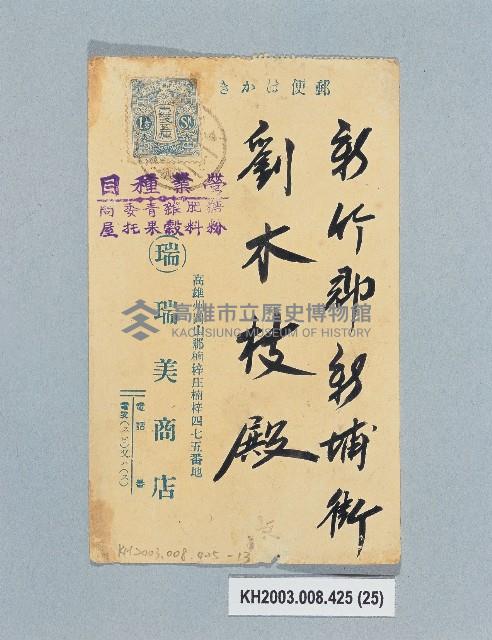 郵便はかき
新竹郡新埔街
劉木枝殿
營業種目
糖肥雜青委問
粉料穀果托屋
瑞
高雄州岡山郡楠梓庄楠梓四七五番地
瑞美商店
電話 番
高雄市立歷史博物館
KAOHSIUNG MUSEUM OF HISTORY
KH2003.008.425-13
KH2003.008.425 (25)